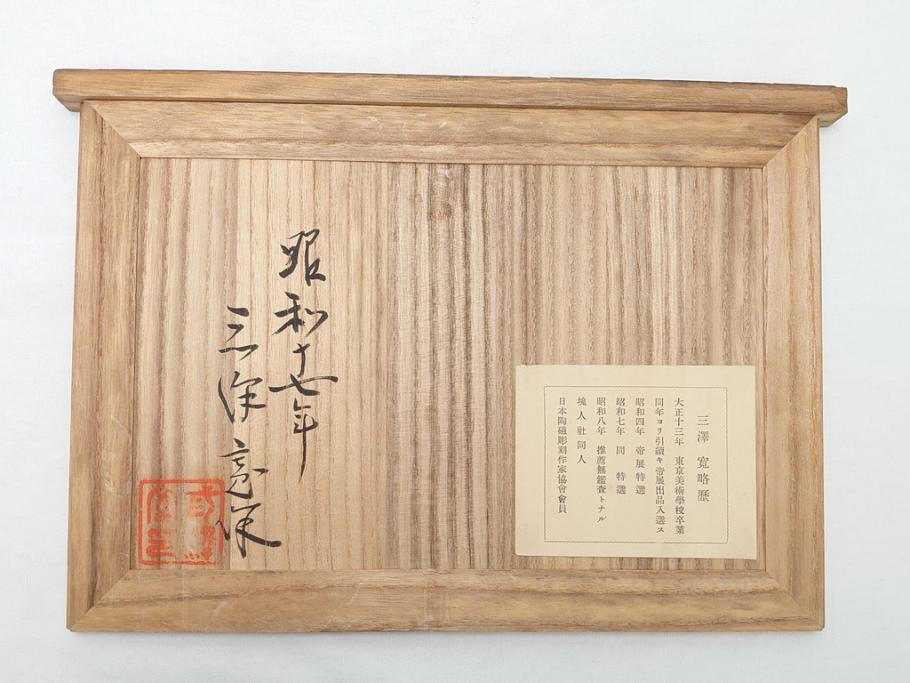 三澤寛略歴
大正十三年 東京美術學校卒業
同年ヨリ引續キ帝展出品入選ス
昭和四年 帝展特選
昭和七年 同 特選
昭和八年 推薦無鑑査トナル
塊人社同人
日本陶磁彫刻作家協會會員
昭和十七年
三澤寛作